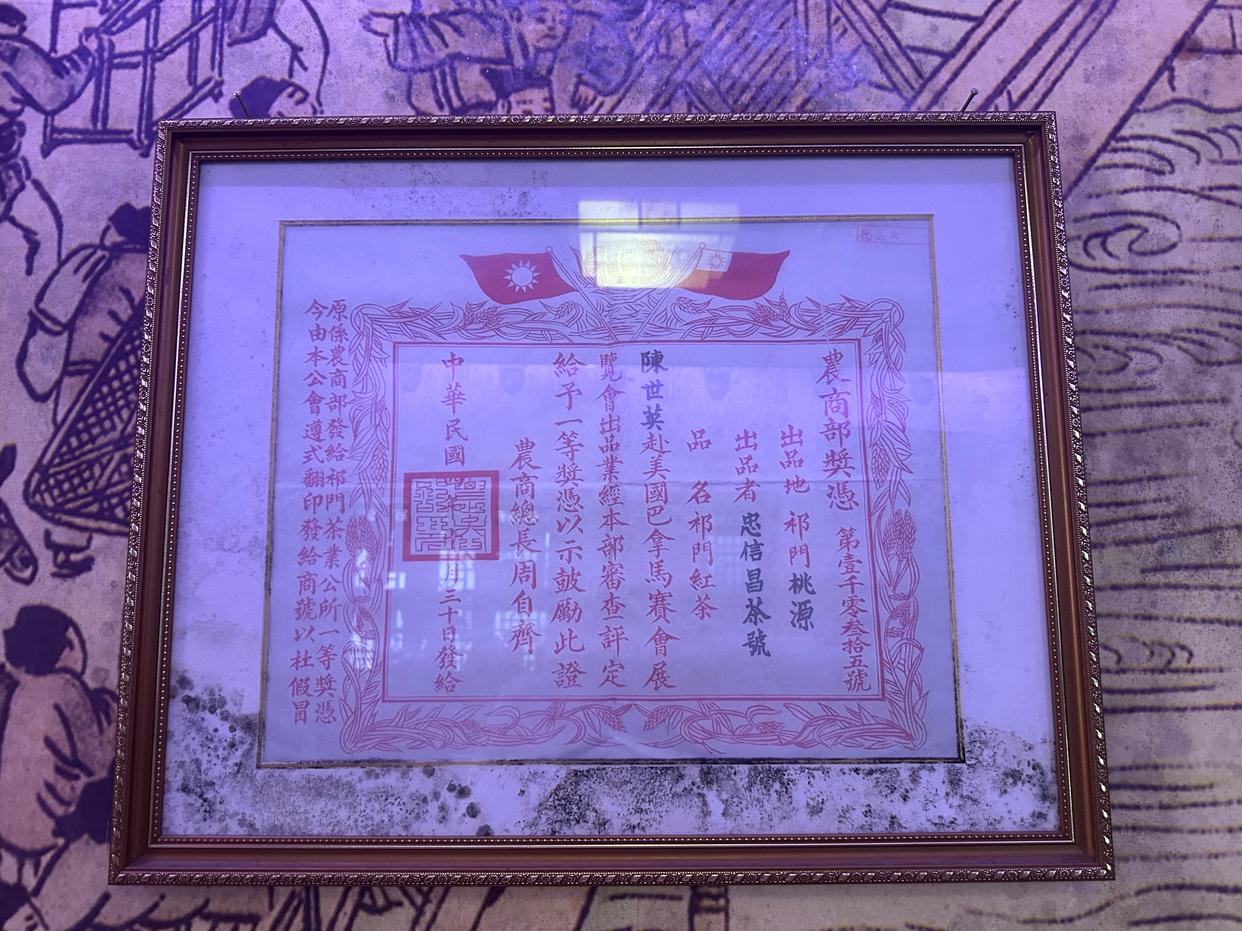 農商部獎憑 第壹千零叁拾五號
出品地 祁門桃源
出品者 忠信昌茶號
品名 祁門紅茶
陳世英赴美國巴拿馬賽會展
覽會出品業經本部審查評定
給予一等獎憑以示皷勵此證
農商總長周自齊
中華民國 三十日發給
原係農商部發給祁門茶業公所一等獎憑
今由本公會遵式翻印發給商號以杜假冒